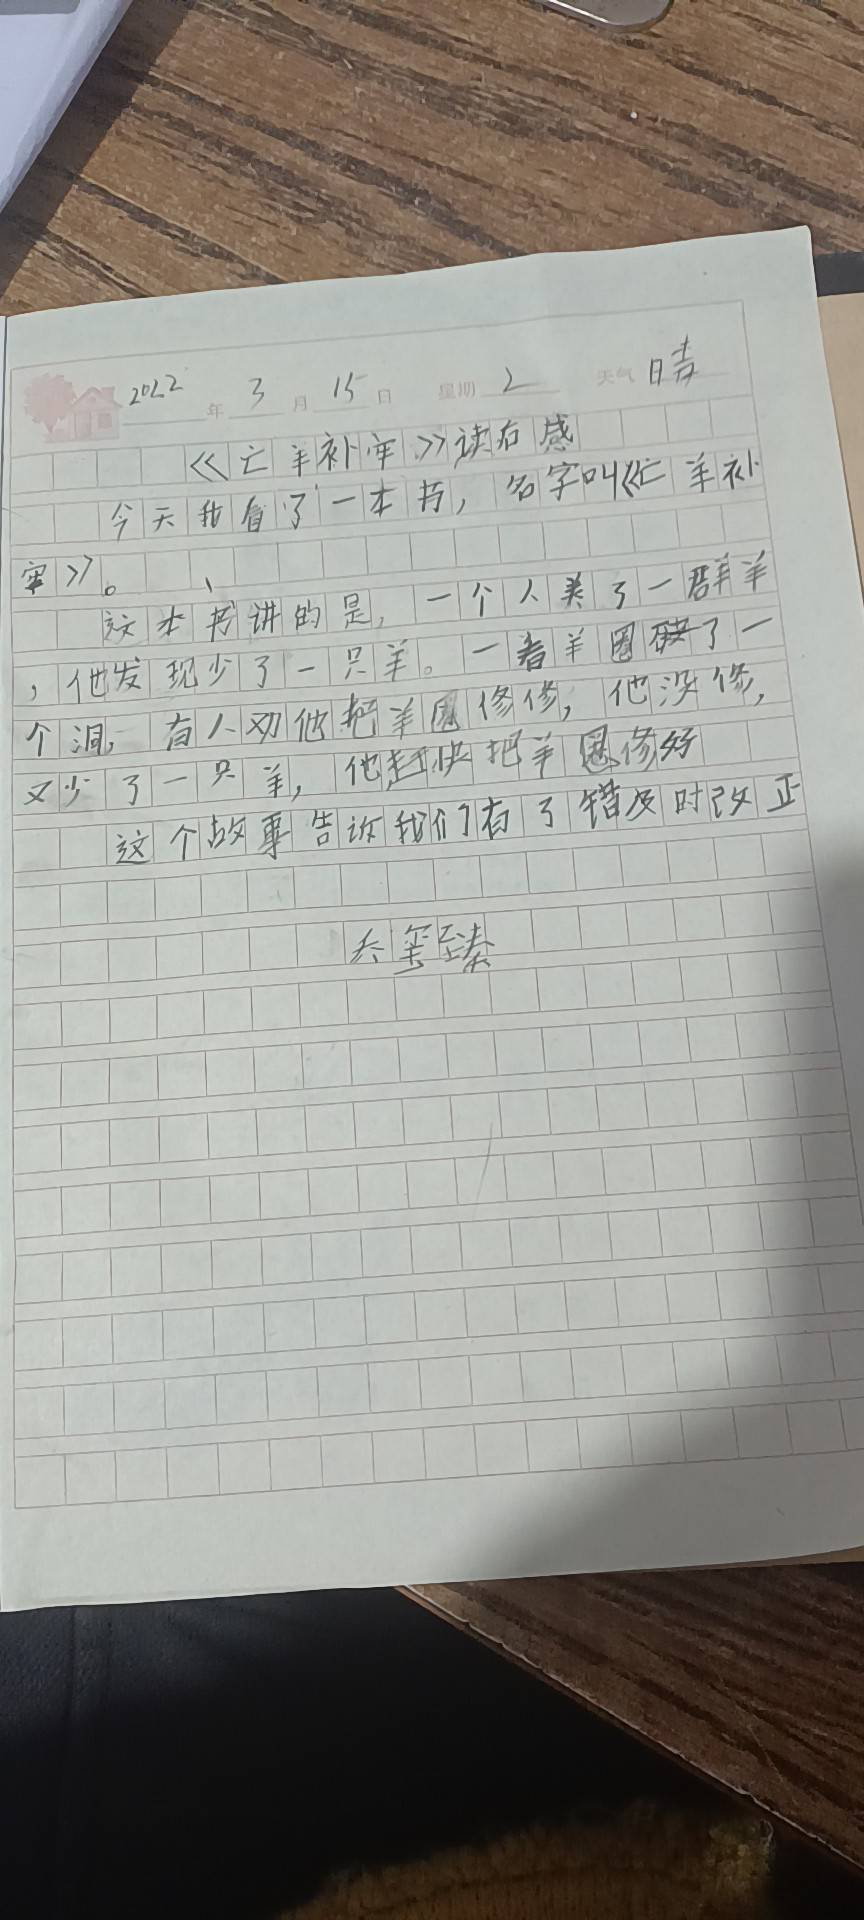 2022年3月15日 星期2 天气晴
《亡羊补牢》读右感
今天我看了一本书,名字叫《亡羊补
牢》。
这本书讲的是,一个人养了一群羊
,他发现少了一只羊。一看羊圈破了一
个洞,有人劝他把羊圈修修,他没修,
又少了一只羊,他赶快把羊圈修好
这个故事告诉我们有了错及时改正
至臻